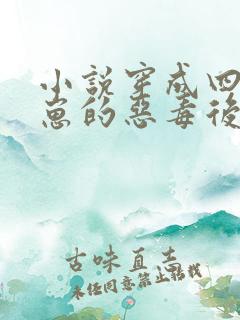 小說穿成四
崽的惡毒後
古味直志
未经同意禁止转载